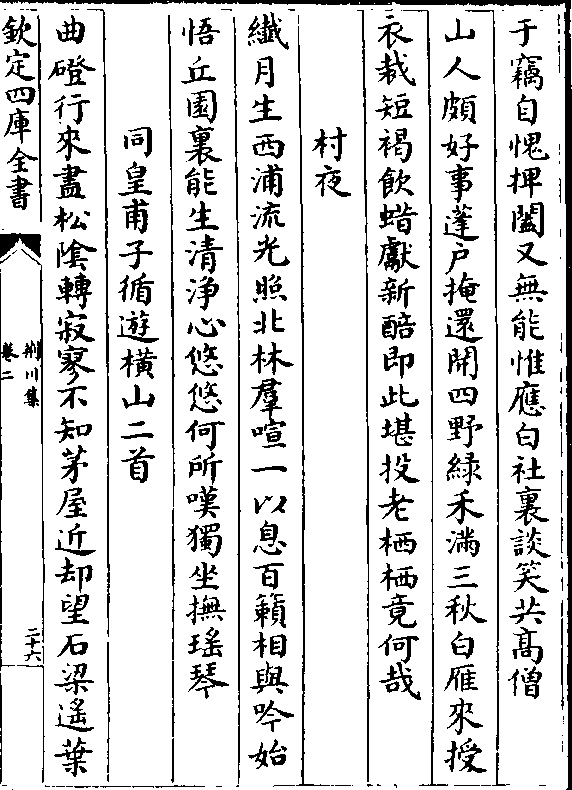 于竊自愧捭闔又無能惟應白社裏談笑共髙僧
山人頗好事蓬户掩還開四野緑禾滿三秋白雁來授
衣裁短褐飲蜡獻新醅即此堪投老栖栖竟何哉
村夜
纎月生西浦流光照北林羣喧一以息百籟相與吟始
悟丘園裏能生清浄心悠悠何所嘆獨坐撫瑶琴
同皇甫子循遊横山二首
曲磴行來盡松陰轉寂寥不知茅屋近却望石梁遥葉
欽定四庫全書
荆川集
卷二
二十六